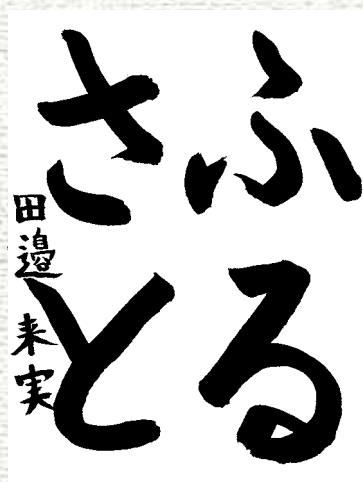 ふる
さと
田邉来実